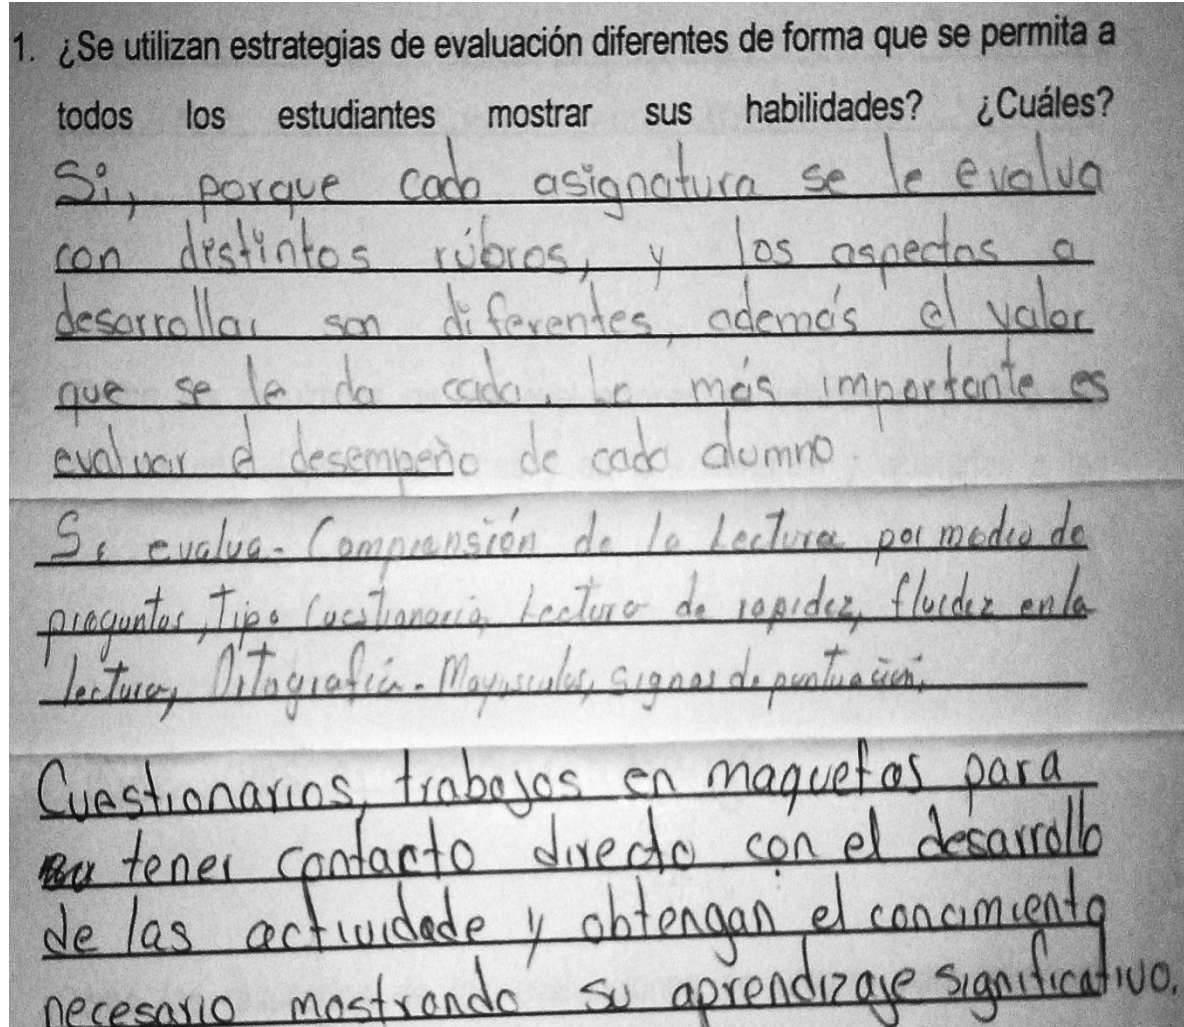 1. ¿Se utilizan estrategias de evaluación diferentes de forma que se permita a
todos los estudiantes mostrar sus habilidades? ¿Cuáles?
Si, porque cada asignatura se le evalua
con distintos rúbros, y los aspectos a
desarrollar son diferentes, además el valor
que se le da cada. Lo más importante es
evaluar el desempeño de cada alumno.
Se evalua - Comprensión de la Lectura por medio de
preguntas, Tipo Cuestionario, Lectura de rapidez, fluidez en la
lectura, Ortografía - Mayusculas, signos de puntuación.
Cuestionarios, trabajos en maquetas para
tener contacto directo con el desarrollo
de las actividade y obtengan el concimiento
necesario mostrando su aprendizaje significativo.